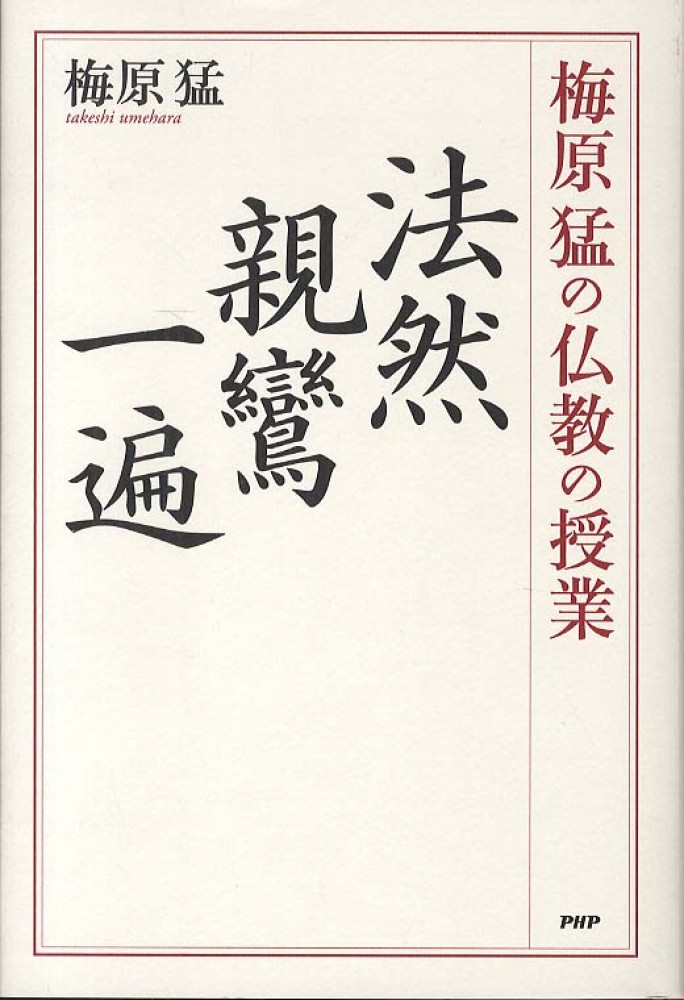 梅原猛の仏教の授業
法然
親鸞
一遍
梅原猛
takeshi umehara
PHP